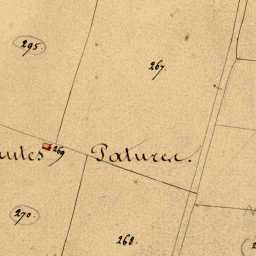 295
267
269
Patures.
270
268